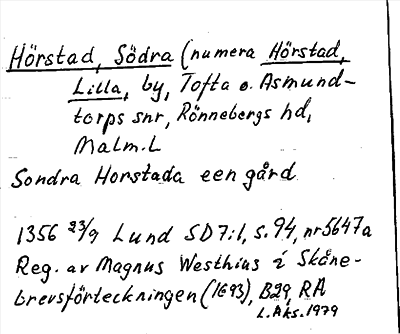 Hörstad, Södra (numera Hörstad,
Lilla, by, Tofta o. Asmund-
torps snr, Rönnebergs hd,
Malm. L
Sondra Horstada een gård
1356 23/9 Lund SD7:1, s. 94, nr 5647a
Reg. av Magnus Westhius i Skåne-
brevsförteckningen (1693), B29, RA
L. Aks. 1979